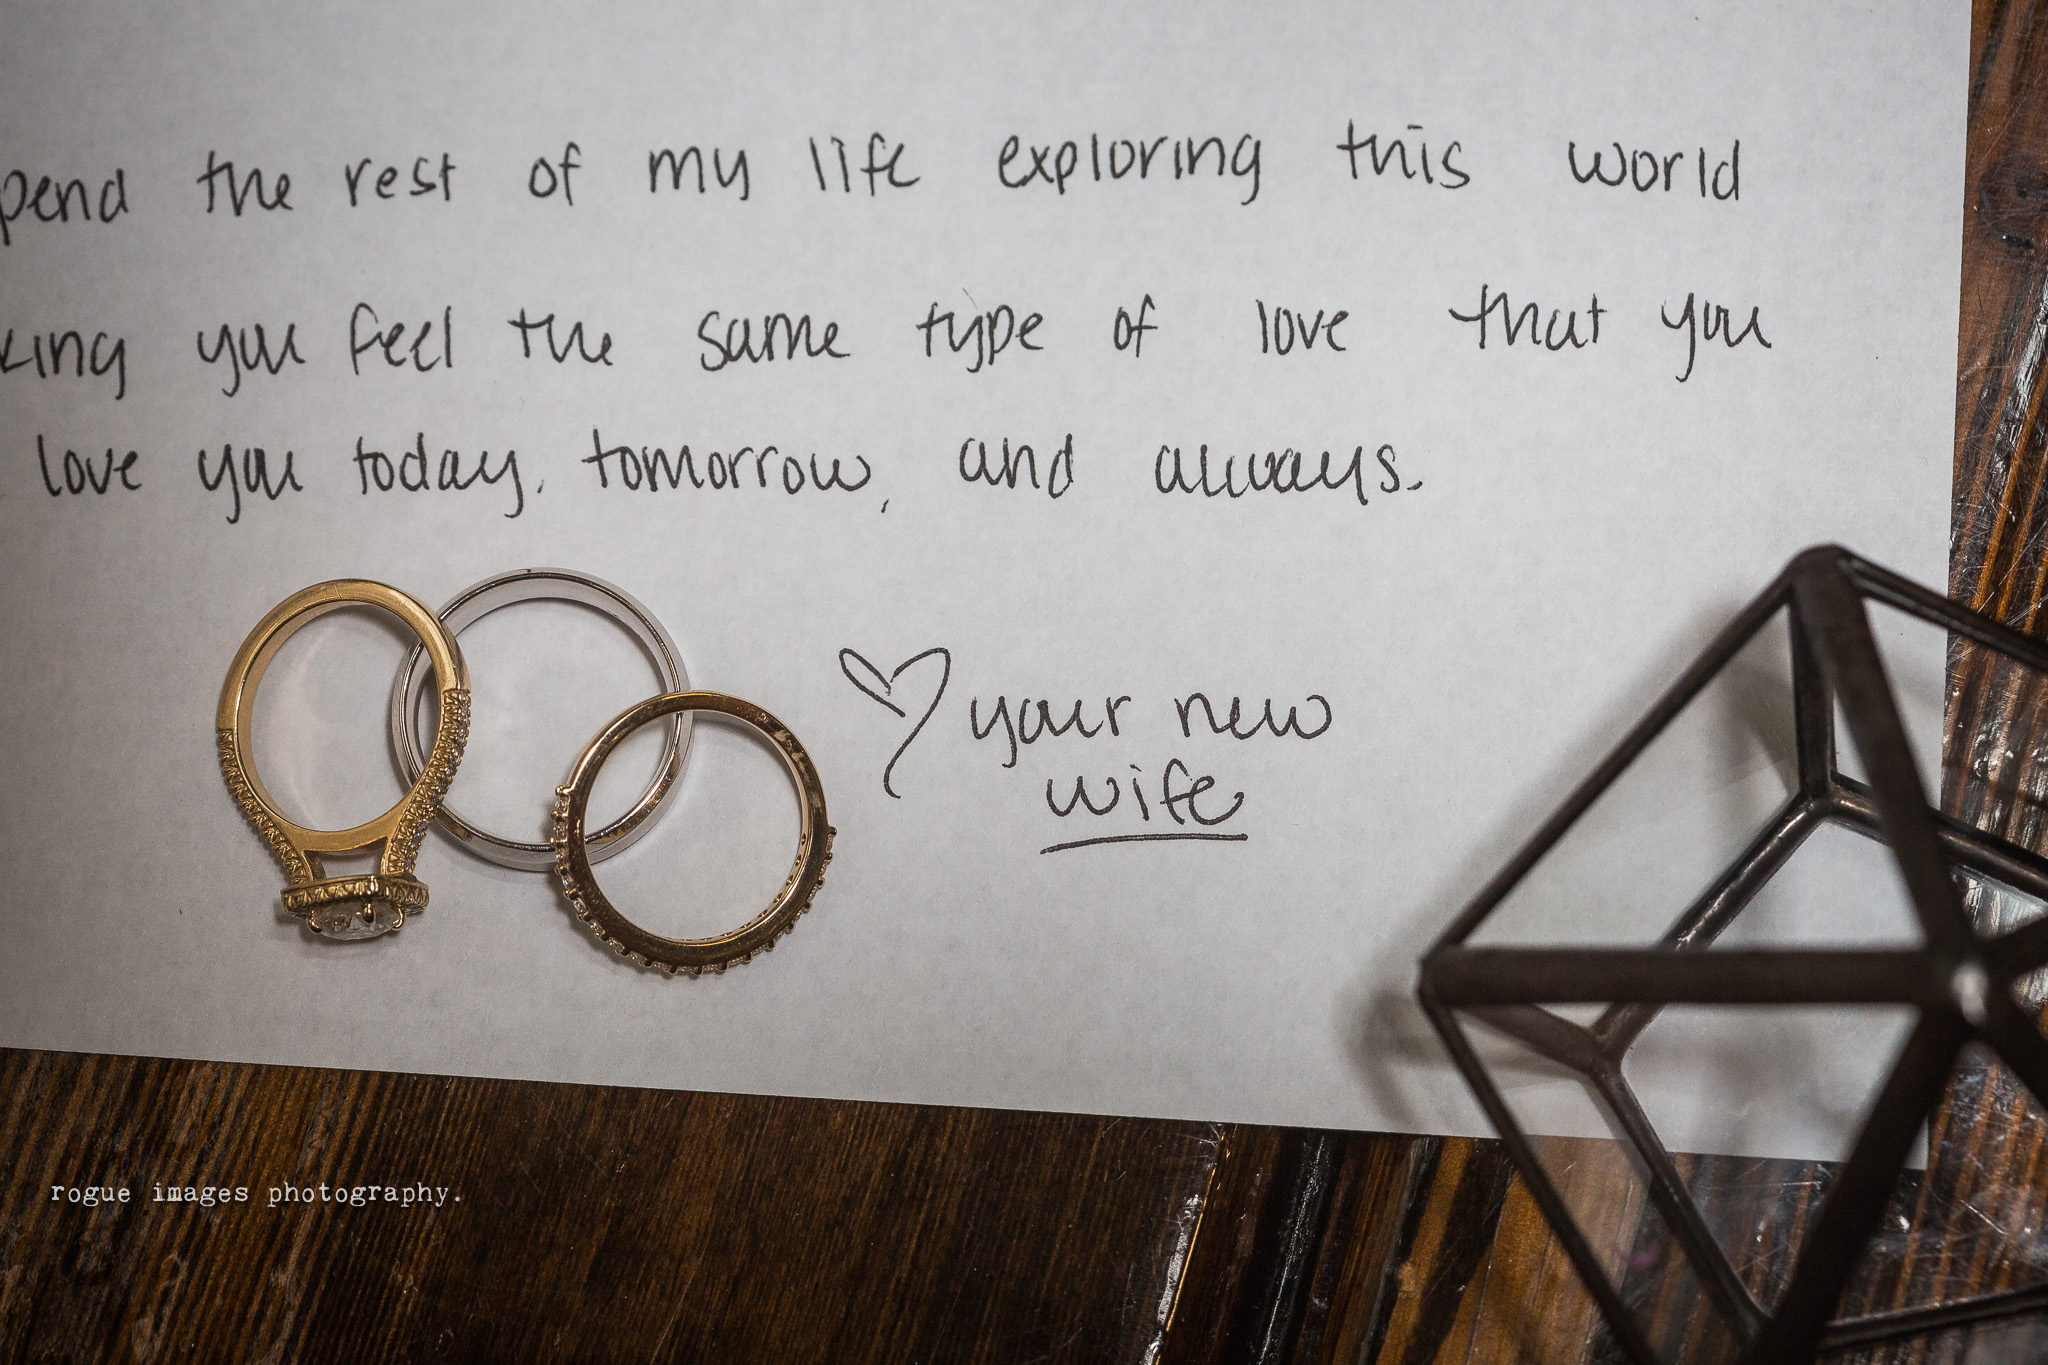 pend the rest of my life exploring this world
king you feel the same type of love that you
love you today, tomorrow, and always.
your new
wife
rogue images photography.